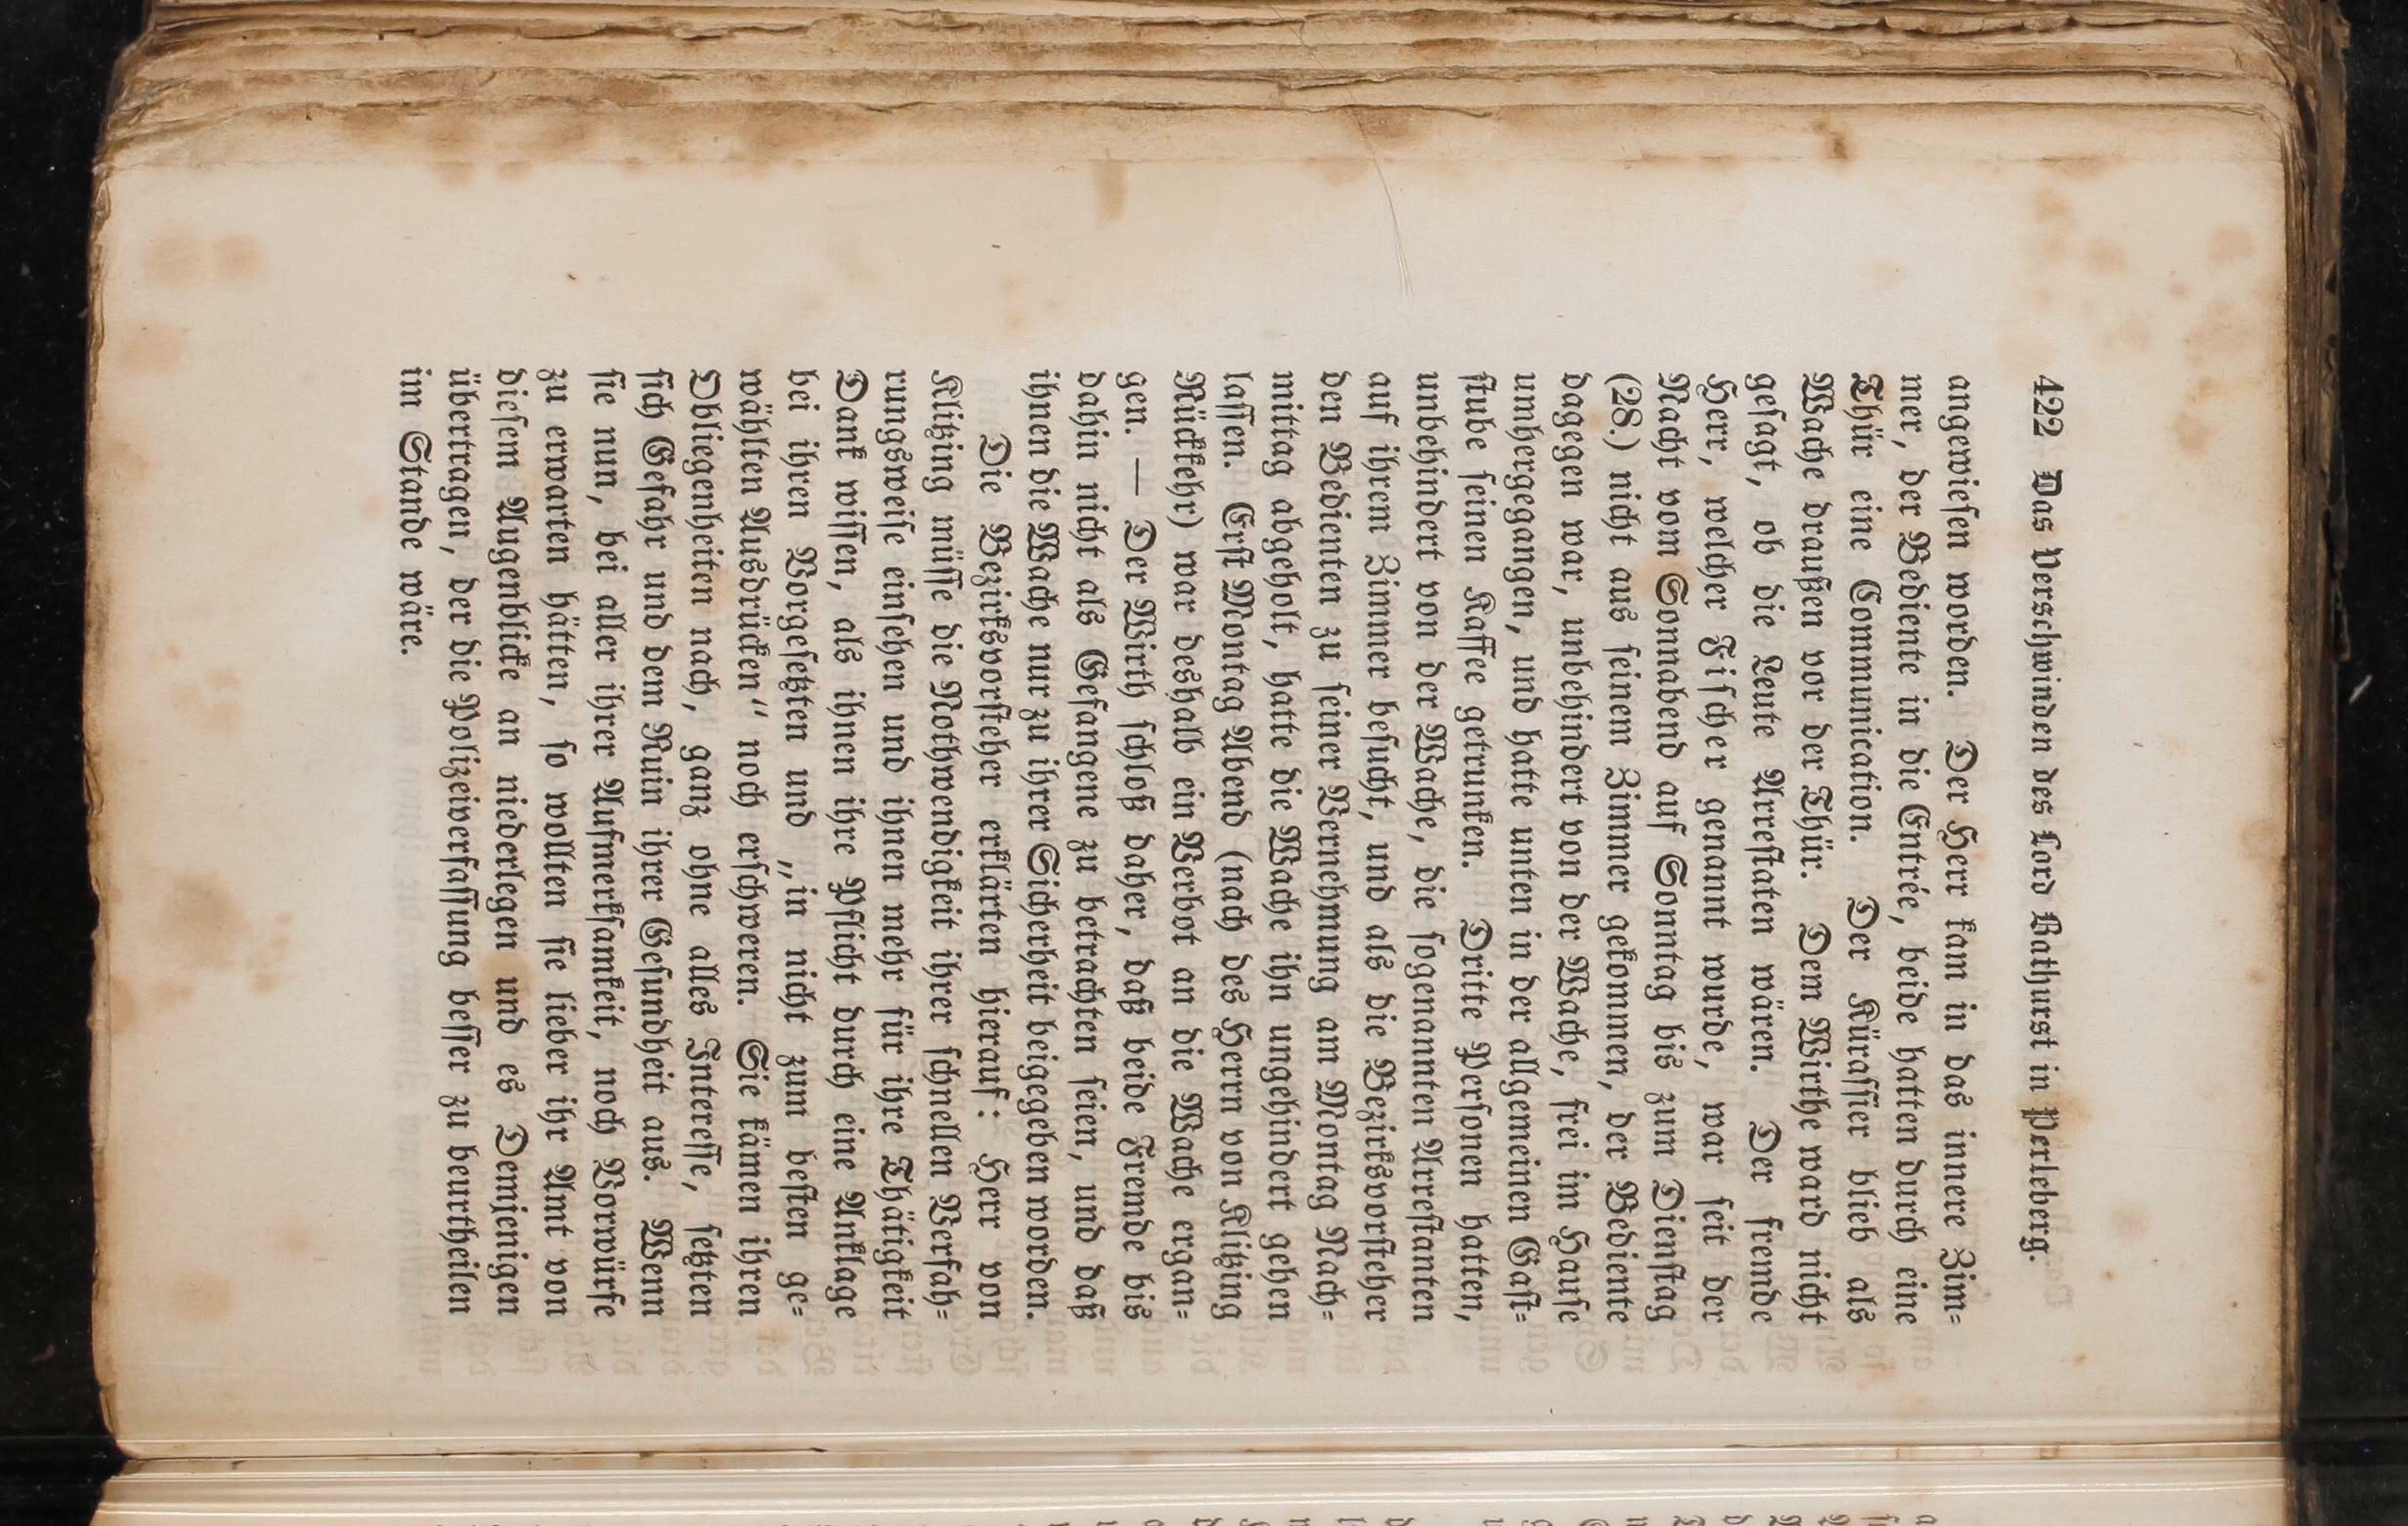 422 Das Verschwinden des Lord Bathurst in Perleberg.
angewieſen worden. Der Herr kam in das innere Zim-
mer, der Bediente in die Entrée, beide hatten durch eine
Thür eine Communication. Der Küraſſier blieb als
Wache draußen vor der Thür. Dem Wirthe ward nicht
geſagt, ob die Leute Arreſtaten wären. Der fremde
Herr, welcher Fiſcher genannt wurde, war ſeit der
Nacht vom Sonnabend auf Sonntag bis zum Dienſtag
(28.) nicht aus ſeinem Zimmer gekommen, der Bediente
dagegen war, unbehindert von der Wache, frei im Hauſe
umhergegangen, und hatte unten in der allgemeinen Gaſt-
ſtube ſeinen Kaffee getrunken. Dritte Perſonen hatten,
unbehindert von der Wache, die ſogenannten Arreſtanten
auf ihrem Zimmer beſucht, und als die Bezirksvorſteher
den Bedienten zu ſeiner Vernehmung am Montag Nach-
mittag abgeholt, hatte die Wache ihn ungehindert gehen
laſſen. Erſt Montag Abend (nach des Herrn von Klitzing
Rückkehr) war deshalb ein Verbot an die Wache ergan-
gen. — Der Wirth ſchloß daher, daß beide Fremde bis
dahin nicht als Gefangene zu betrachten ſeien, und daß
ihnen die Wache nur zu ihrer Sicherheit beigegeben worden.
Die Bezirksvorſteher erklärten hierauf: Herr von
Klitzing müſſe die Nothwendigkeit ihrer ſchnellen Verfah-
rungsweiſe einſehen und ihnen mehr für ihre Thätigkeit
Dank wiſſen, als ihnen ihre Pflicht durch eine Anklage
bei ihren Vorgeſetzten und „in nicht zum beſten ge-
wählten Ausdrücken“ noch erſchweren. Sie kämen ihren
Obliegenheiten nach, ganz ohne alles Intereſſe, ſetzten
ſich Gefahr und dem Ruin ihrer Geſundheit aus. Wenn
ſie nun, bei aller ihrer Aufmerkſamkeit, noch Vorwürfe
zu erwarten hätten, ſo wollten ſie lieber ihr Amt von
dieſem Augenblicke an niederlegen und es Demjenigen
übertragen, der die Polizeiverfaſſung beſſer zu beurtheilen
im Stande wäre.